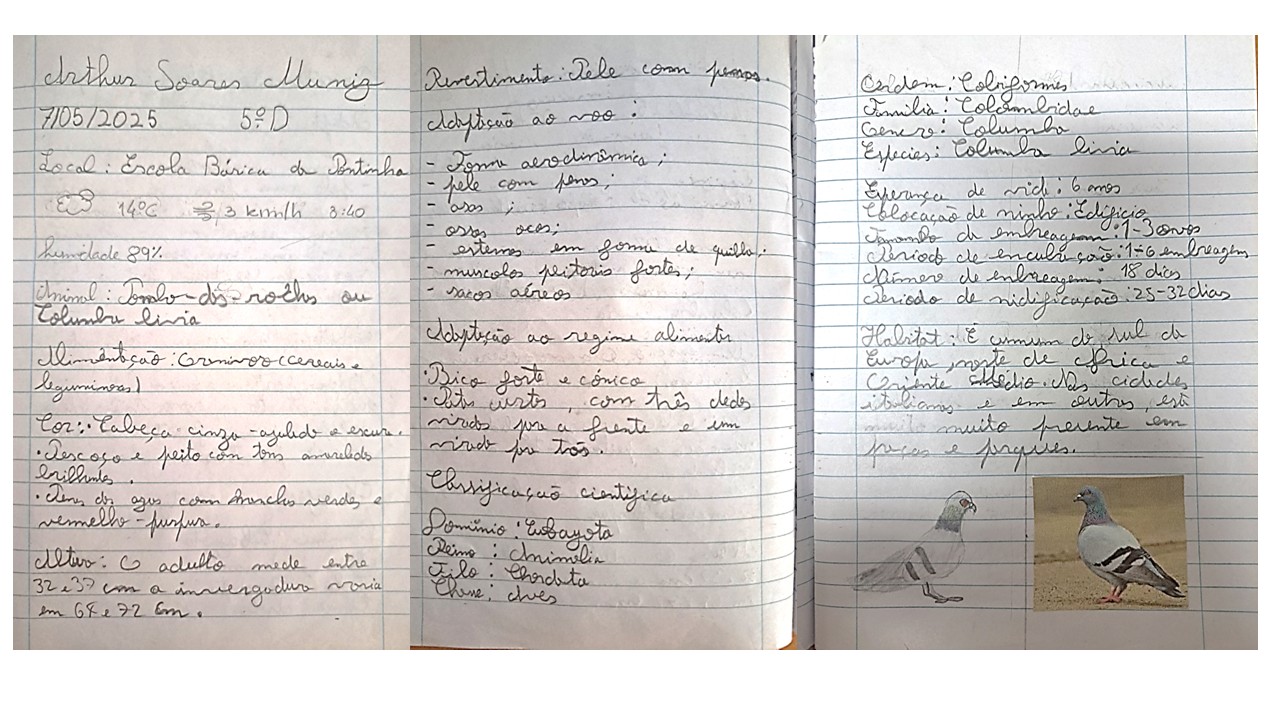 Arthur Soares Muniz
7/05/2025 5ºD
Local: Escola Básica da Pontinha
14ºC 3 km/h 8:40
humidade 89%
Animal: Pombo-das-rochas ou
Columba livia
Alimentação: Granivoro (cereais e
leguminosas)
Cor: Cabeça cinza-azulado e escura.
• Pescoço e peito com tons amarelados
brilhantes.
• Penas das azas com manchas verdes e
vermelho-púrpura.
Altura: O adulto mede entre
32 e 37 cm a invergadura varia
em 64 e 72 cm.
Revestimento: Pele com penas.
Adaptação ao voo:
- Forma aerodinâmica;
- pele com penas;
- asas;
- ossos ocos;
- esterno em forma de quilha;
- musculos peitorais fortes;
- sacos aéreos
Adaptação ao regime alimentar
• Bico forte e cónico
• Patas curtas, com três dedos
virados para a frente e um
virado para trás.
Classificação científica
Domínio: Eukaryota
Reino: Animalia
Filo: Chordata
Classe: Aves
Ordem: Columbiformes
Familia: Columbidae
Genero: Columba
Especies: Columba livia
Esperança de vida: 6 anos
Colocação de ninho: Edificio
Tamanho da embreagem: 1-3 ovos
Periodo de encubação: 1-6 embreagens
Número de embreagem: 18 dias
Periodo de nidificação: 25-32 dias
Habitat: É comum do sul da
Europa, norte de Africa e
Oriente Médio. Nas cidades
italianas e em outras, está
muito presente em
praças e parques.